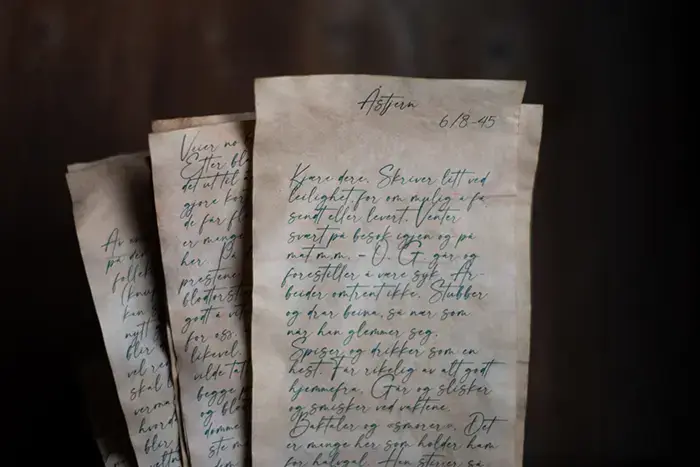 Åstjern
6/8-45
Kjære dere. Skriver litt ved
leilighet, for om mulig å få
sendt eller levert. Venter
svært på besøk igjen og på
mat m.m. – O. G. går og
forestiller å være syk. Ar-
beider omtrent ikke. Stubber
og drar beina, så nær som
når han glemmer seg.
Spiser og drikker som en
hest. Får rikelig av alt godt
hjemmefra. Går og slisker
og smisker ved vaktene.
Baktaler og «smører». Det
er mange her som holder ham
for halvgal. Han steier så
Veier no
Etter blo
det ut til å
gjøre kor
de får fl
er mange
her. På
prestene
blodtørst
godt å vit
for oss,
likevel
vilde tat
begge p
og blo
domme
ste m
Av
på den
folkek
(knu
kan
nytt
blir
vel re
skal
verma
hvord
blir